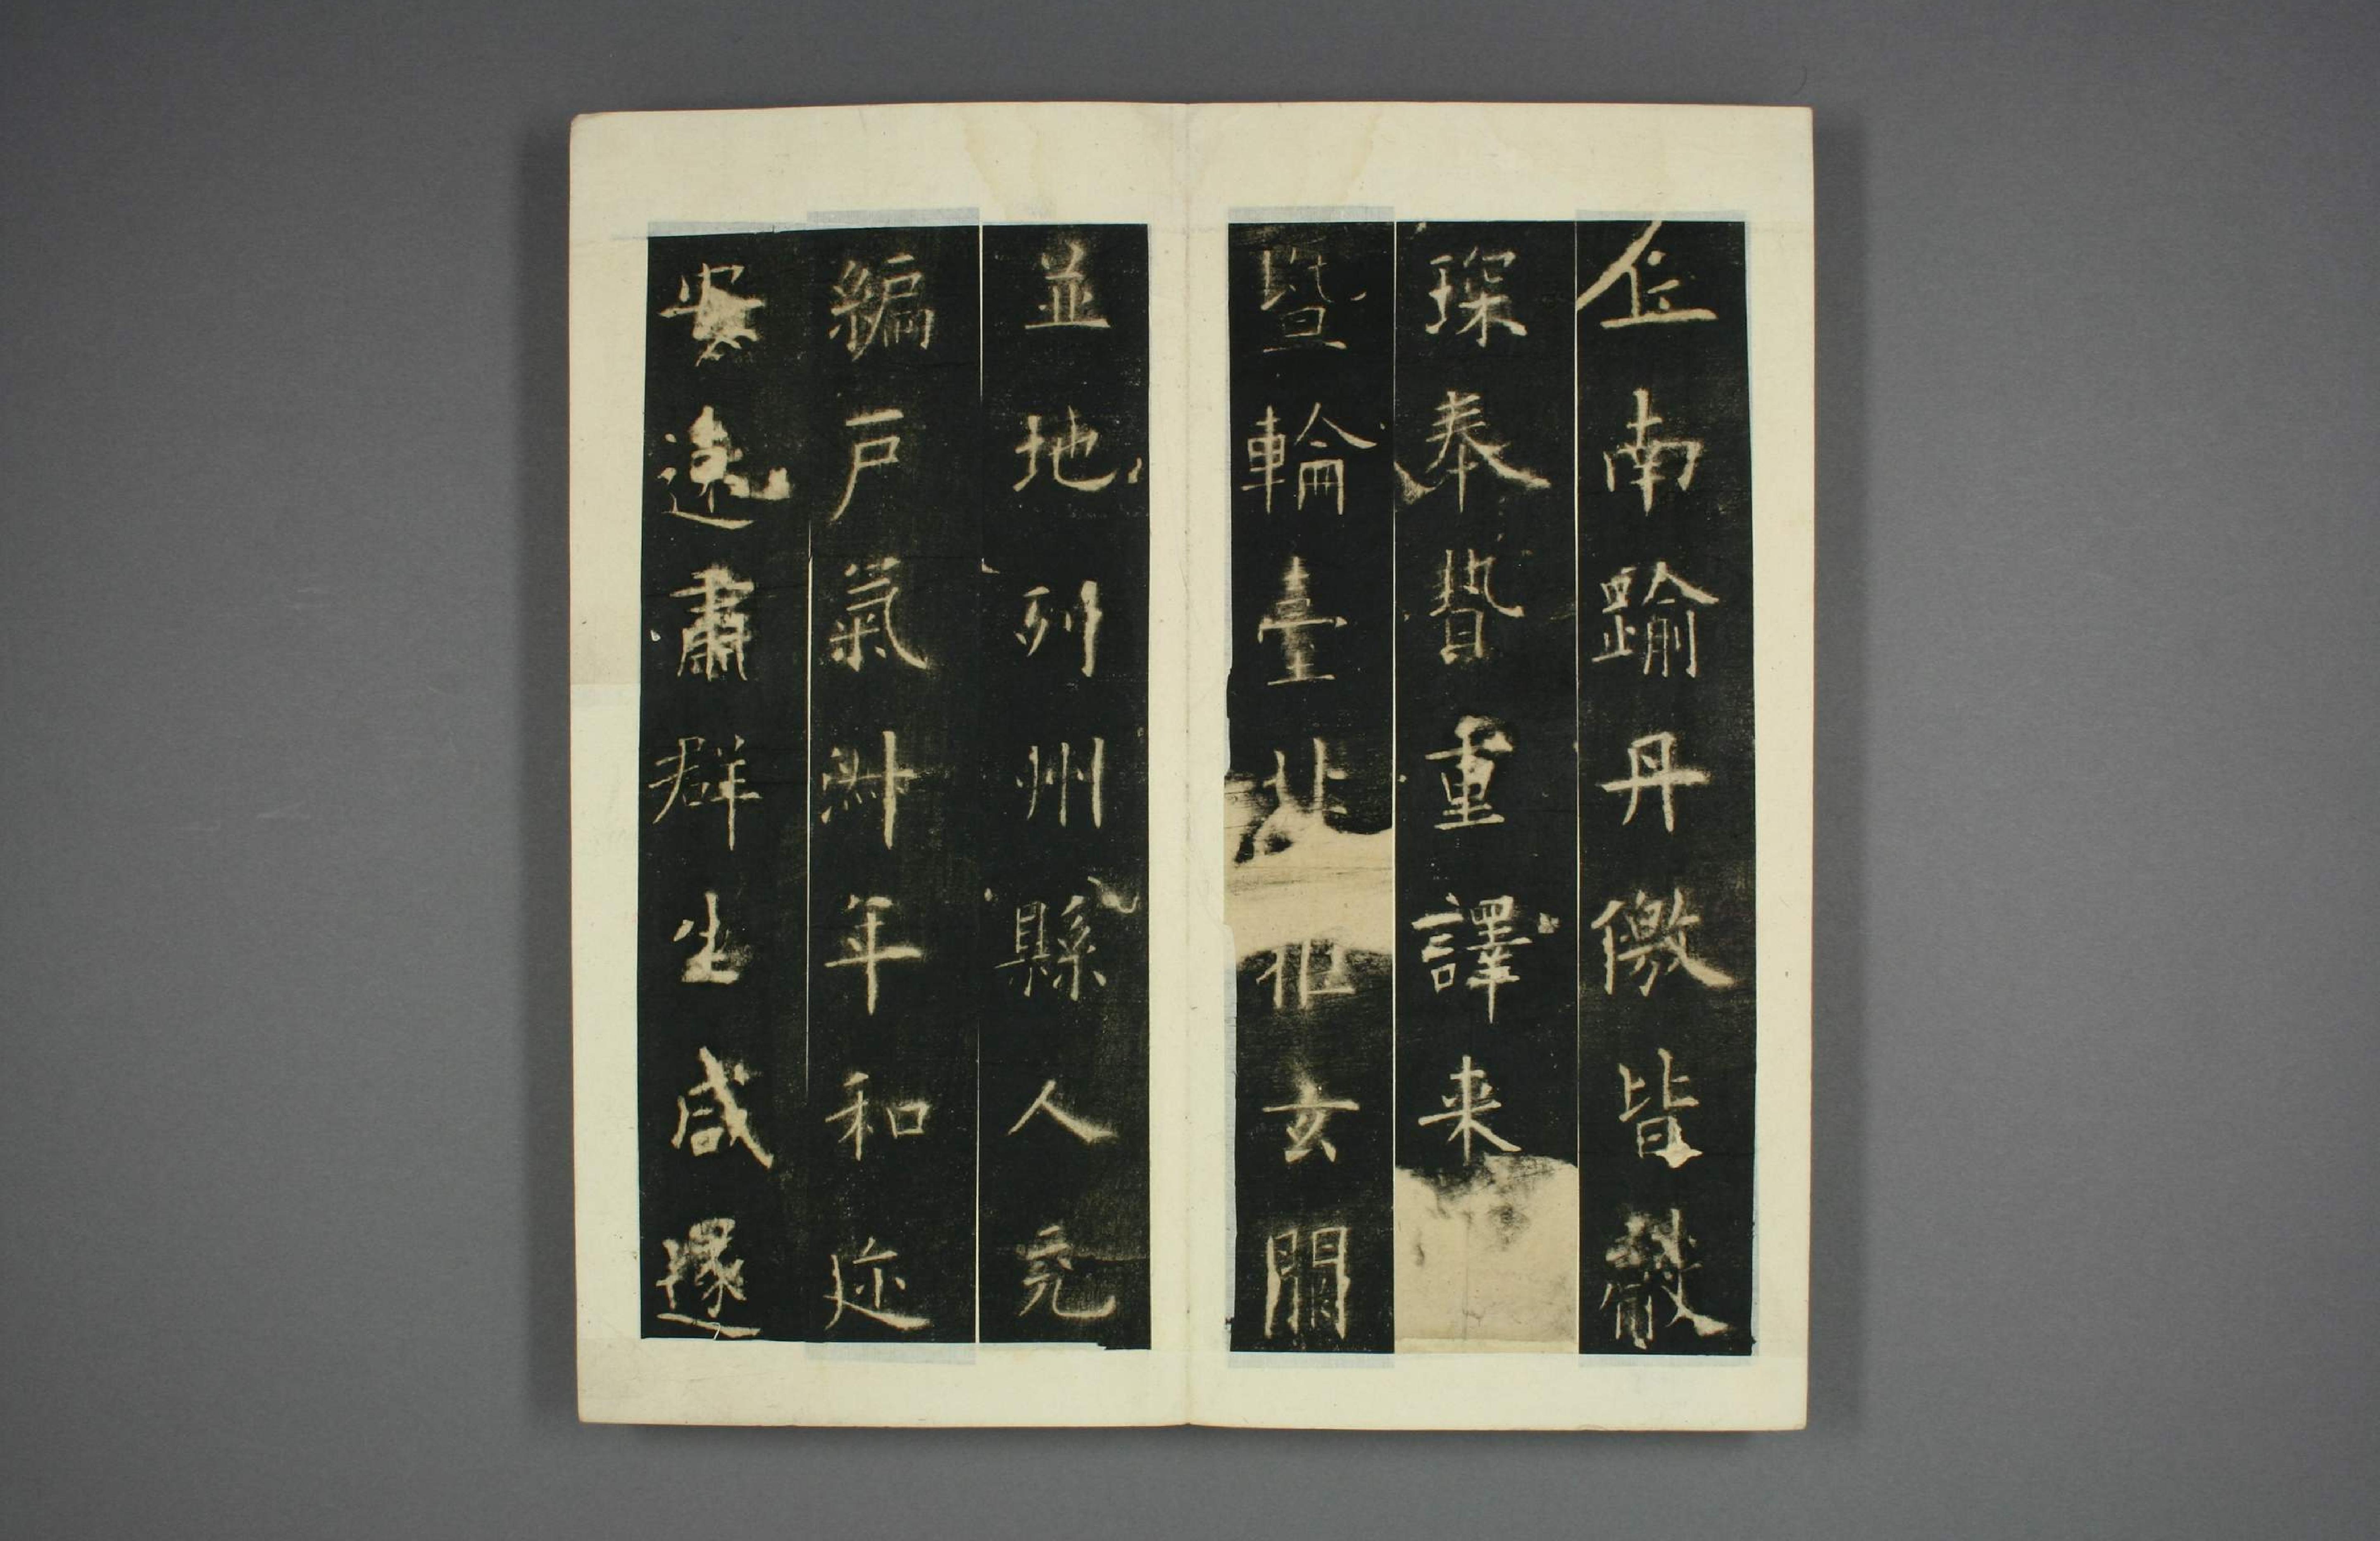 丘南踰丹儌皆獻
琛奉贄重譯来
暨輪臺北拒玄闕
並地列州縣人充
編戶氣淑年和迩
安遠肅群生咸遂